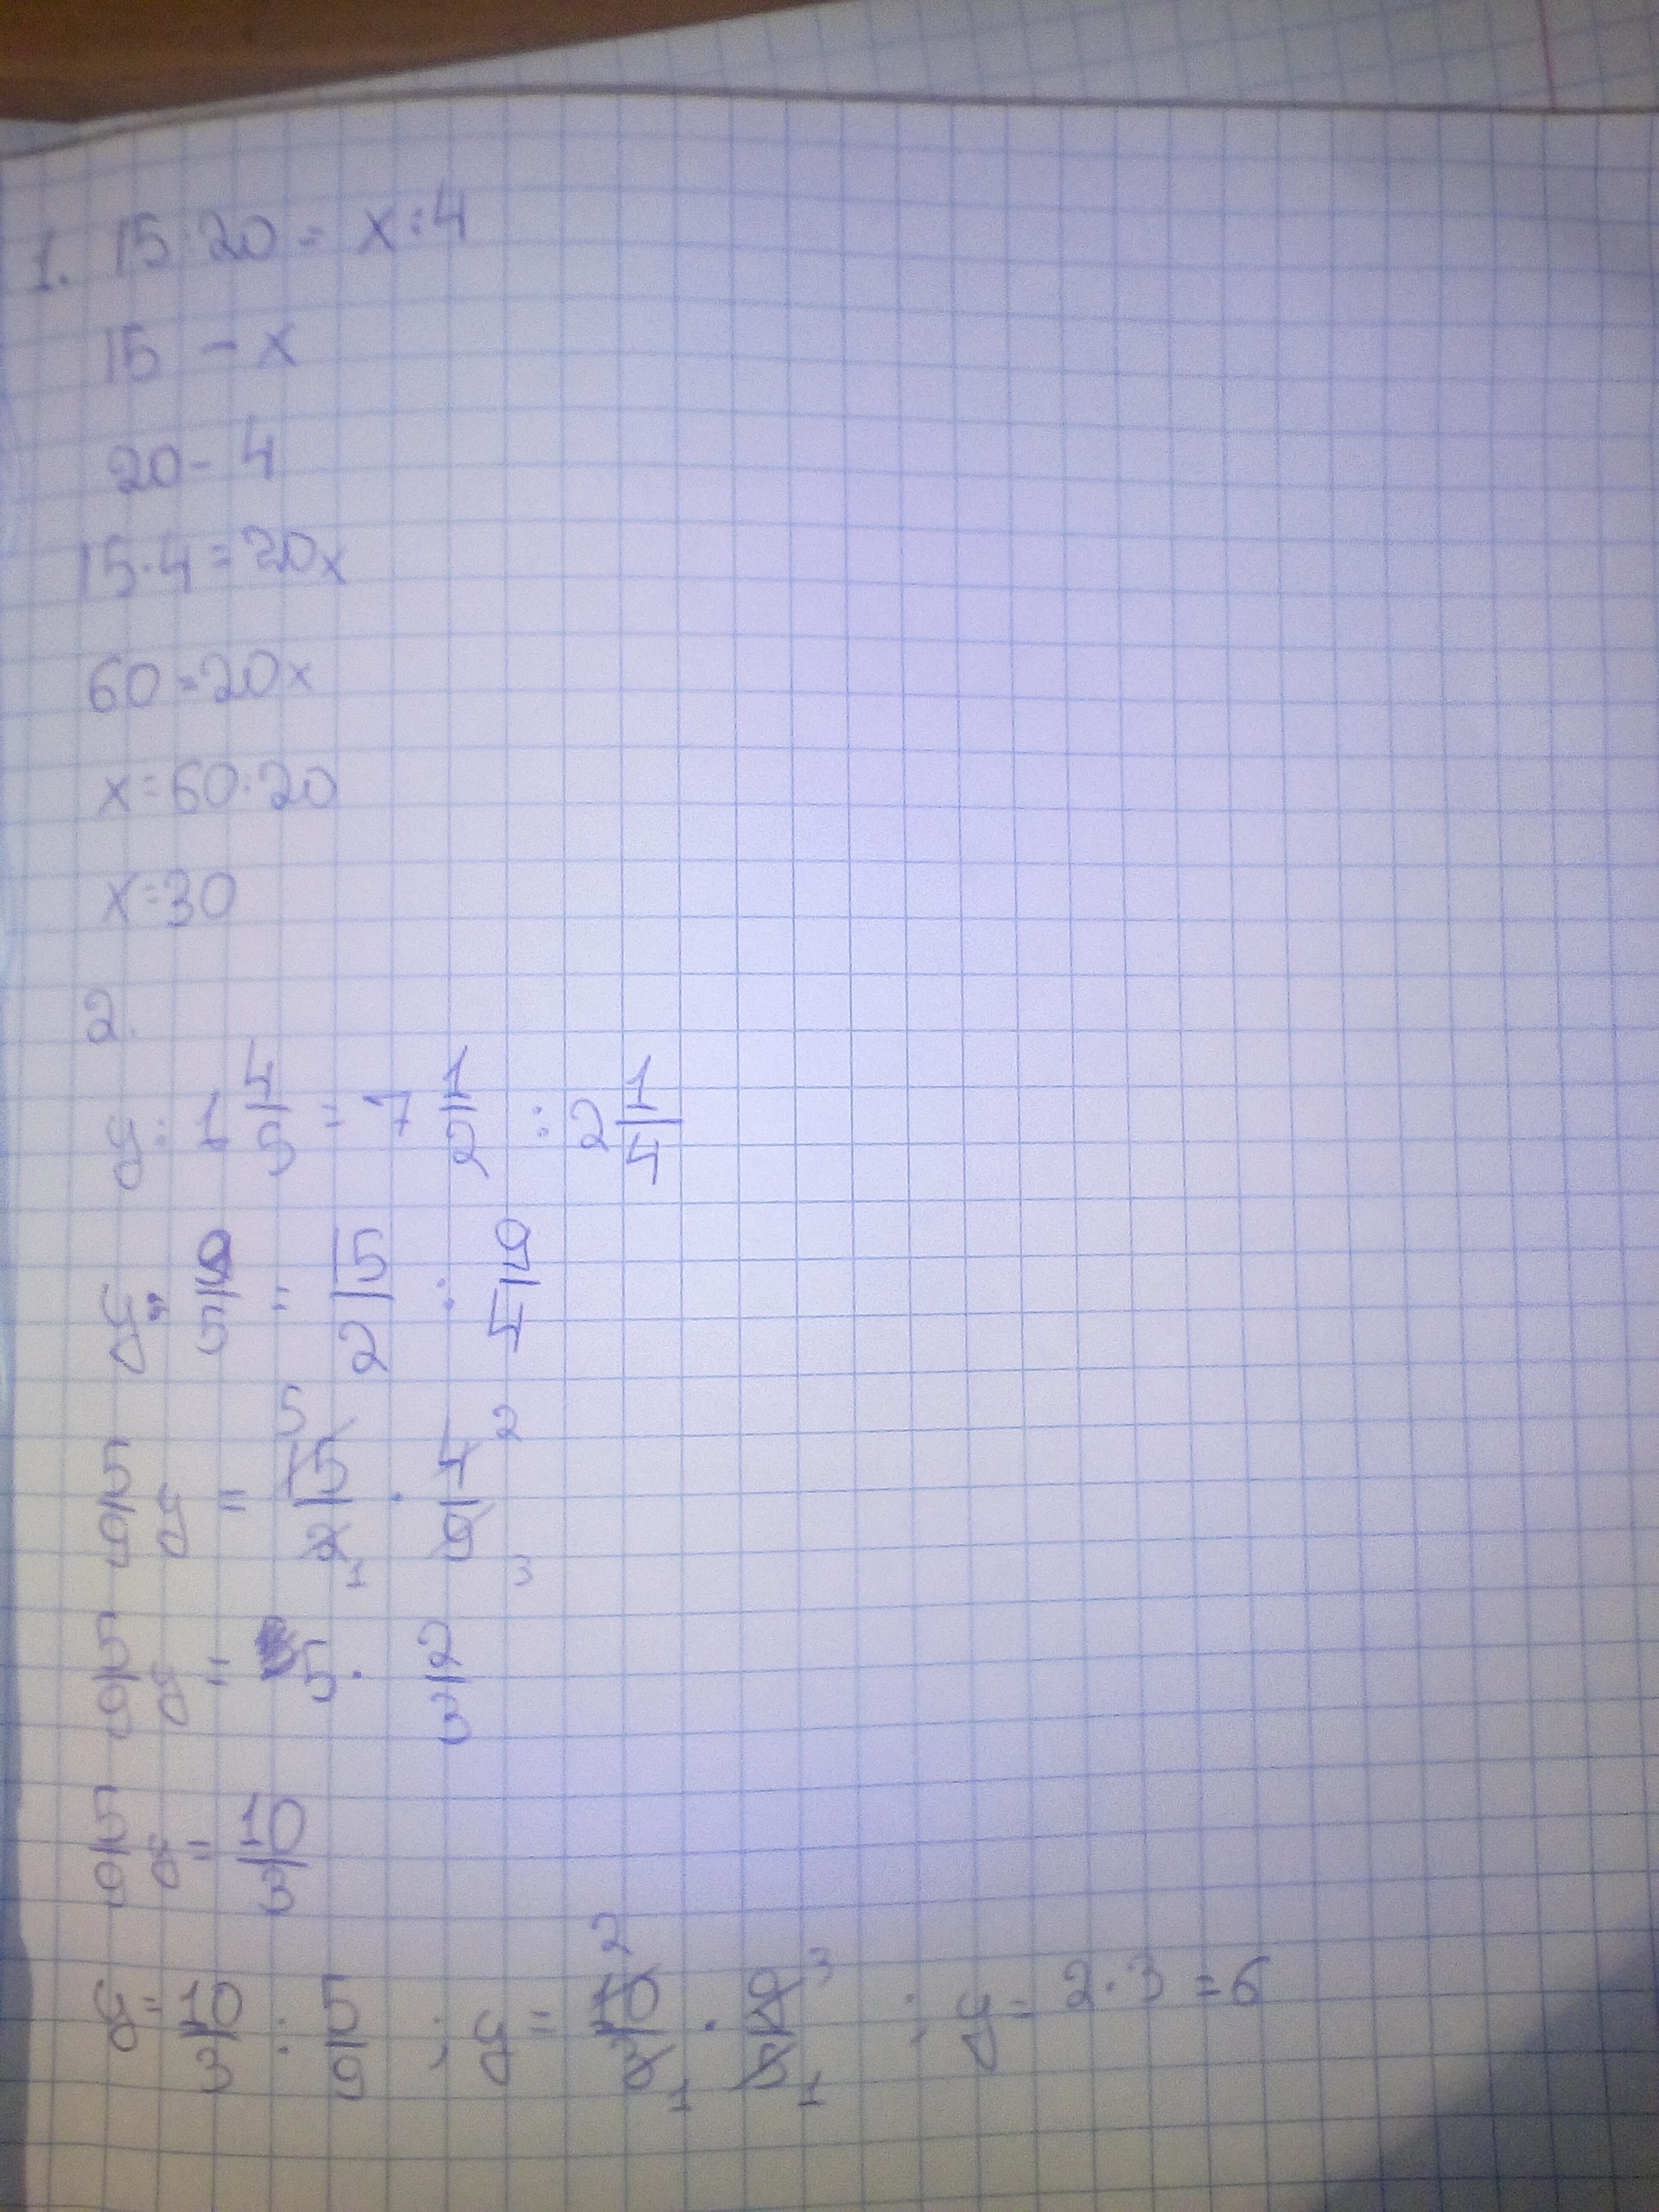 1. 15:20 = x:4
15 – x
20 – 4
15·4=20x
60=20x
x=60:20
x=30
2.
y : 1 4/5 = 7 1/2 : 2 1/4
y : 9/5 = 15/2 : 9/4
5/9 y = 15/2 · 4/9 5 1 2 3
5/9 y = 5 · 2/3
5/9 y = 10/3
y = 10/3 : 5/9 ; y = 10/3 · 9/5 2 1 3 1 ; y = 2·3 = 6